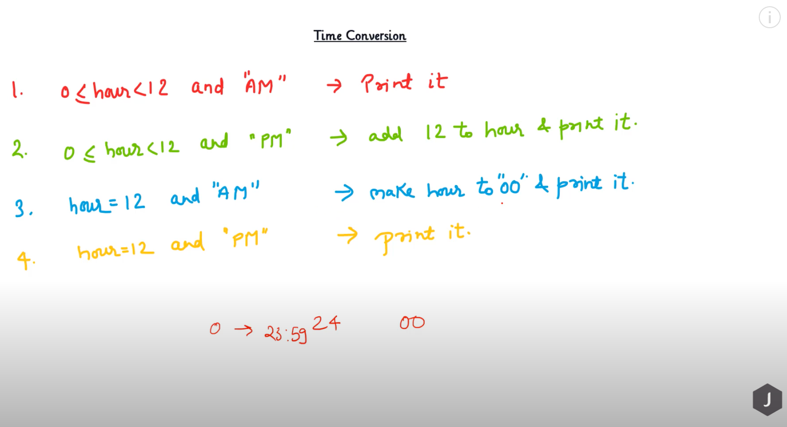 Time Conversion
1. 0 ≤ hour < 12 and "AM" → Print it
2. 0 ≤ hour < 12 and "PM" → add 12 to hour & print it.
3. hour = 12 and "AM" → make hour to "00" & print it.
4. hour = 12 and "PM" → print it.
0 → 23:59 24 00
J